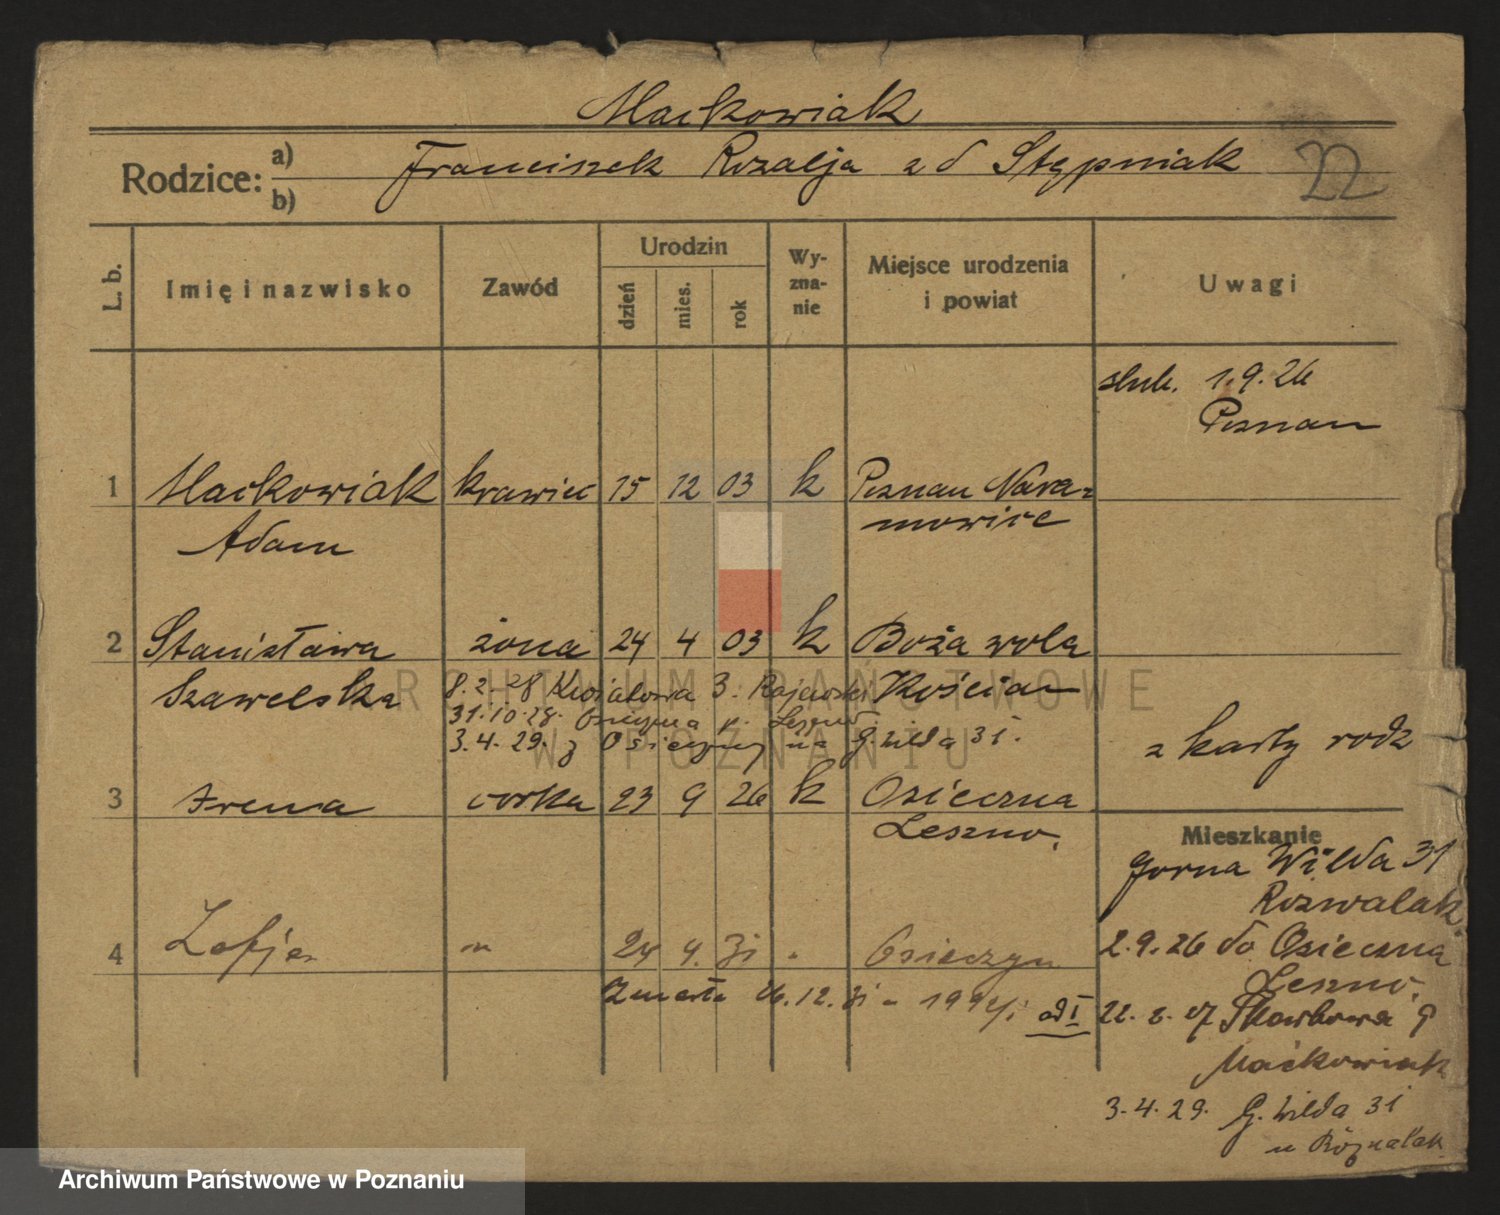 Maćkowiak
Rodzice: a) b) Franciszek Rozalja z d Stępniak
22
L. b. Imię i nazwisko Zawód Urodzin dzień mies. rok Wyznanie Miejsce urodzenia i powiat Uwagi
ślub. 1.9.26
Poznan
1 Maćkowiak krawiec 15 12 03 k Poznan Nara=
Adam mowice
2 Stanisława żona 24 4 03 k Boża wola
Szawelska Kościan
8.2.28 3. Rajewski
31.10.28. Osieczna p. Leszno
3.4.29. z Osieczny na G. Wilda 31.
z karty rodz
3 Irena corka 23 9 26 k Osieczna
Leszno.
Mieszkanie
Gorna Wilda 31
Rozwalak
4 Zofja " 24 4. 31 " Osieczyn
2.9.26 do Osieczna
Leszno.
Zmarła 16.12.31 -
od I 22.2.27 Skarbowa 9
Maćkowiak
3.4.29. G. Wilda 31
u
ARCHIWUM PAŃSTWOWE
W POZNANIU
Archiwum Państwowe w Poznaniu